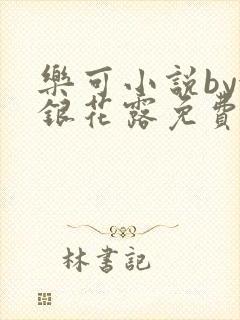 樂可小説by
銀花露免費
林書記